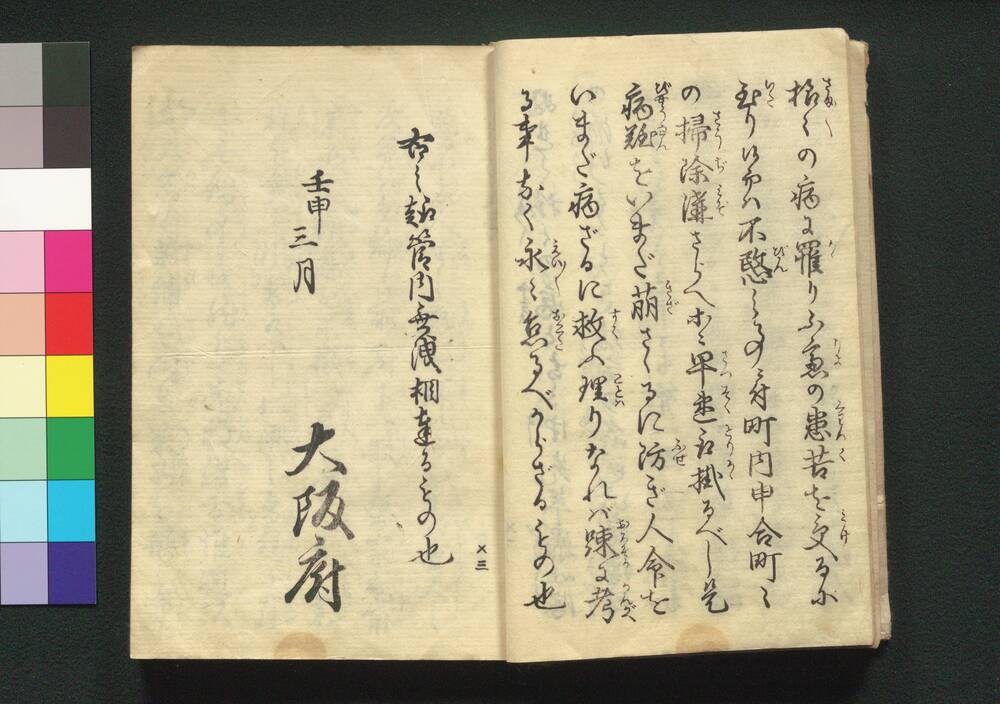 様々の病に罹り不慮の患苦を受るに
至り候ては不愍之事に付町内申合町々
の掃除溝さらへ等早速取掛るべし是
病難をいまだ萌さゞるに防ぎ人命を
いまだ病ざるに救ふ理りなれば疎に考
る事なく永く怠るべからざるもの也
右之趣管内無洩相達るもの也
壬申三月
大阪府
×三